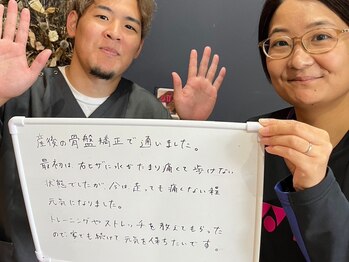 産後の骨盤矯正で通いました。
最初は右ヒザに水がたまり痛くて歩けない
状態でしたが、今は走っても痛くない程
元気になりました。
トレーニングやストレッチを教えてもらった
ので家でも続けて元気を保ちたいです。